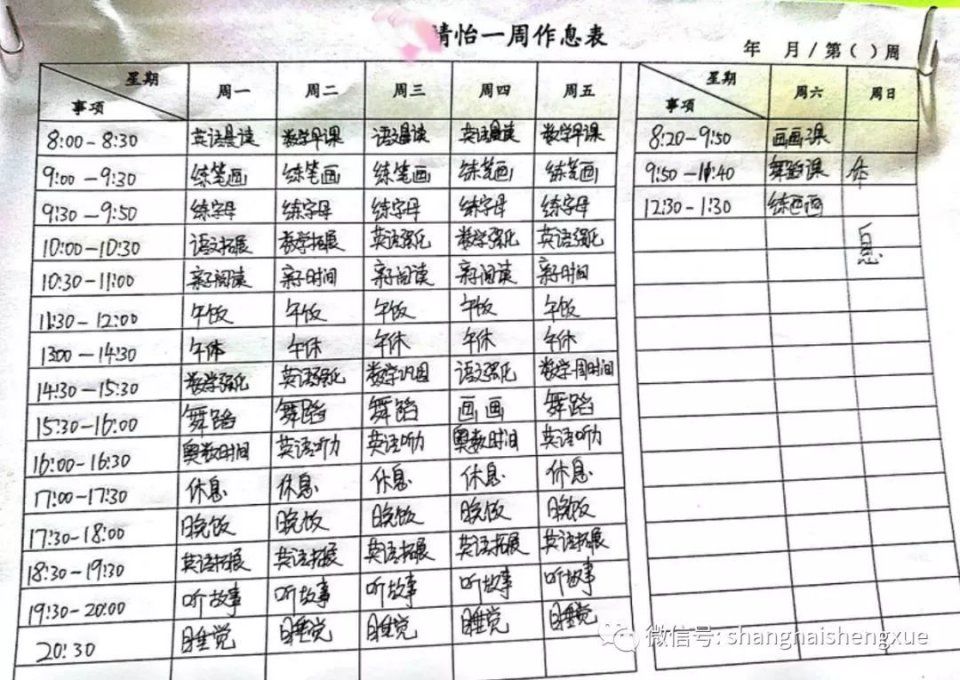 情怡一周作息表
年 月/第( )周
星期 事项 周一 周二 周三 周四 周五
8:00-8:30 英语晨读 数学早课 语文晨读 英语晨读 数学早课
9:00-9:30 练笔画 练笔画 练笔画 练笔画 练笔画
9:30-9:50 练字母 练字母 练字母 练字母 练字母
10:00-10:30 语文拓展 数学拓展 英语强化 数学强化 英语强化
10:30-11:00 亲子阅读 亲子时间 亲子阅读 亲子阅读 亲子时间
11:30-12:00 午饭 午饭 午饭 午饭 午饭
13:00-14:30 午休 午休 午休 午休 午休
14:30-15:30 数学强化 英语强化 数学巩固 语文强化 数学周时间
15:30-16:00 舞蹈 舞蹈 舞蹈 画画 舞蹈
16:00-16:30 奥数时间 英语听力 英语听力 奥数时间 英语听力
17:00-17:30 休息 休息 休息 休息 休息
17:30-18:00 晚饭 晚饭 晚饭 晚饭 晚饭
18:30-19:30 英语拓展 英语拓展 英语拓展 英语拓展 英语拓展
19:30-20:00 听故事 听故事 听故事 听故事 听故事
20:30 睡觉 睡觉 睡觉 睡觉 睡觉
星期 事项 周六 周日
8:20-9:50 画画课
9:50-11:40 舞蹈课 休
12:30-1:30 练画画
息
微信号: shanghaishengxue